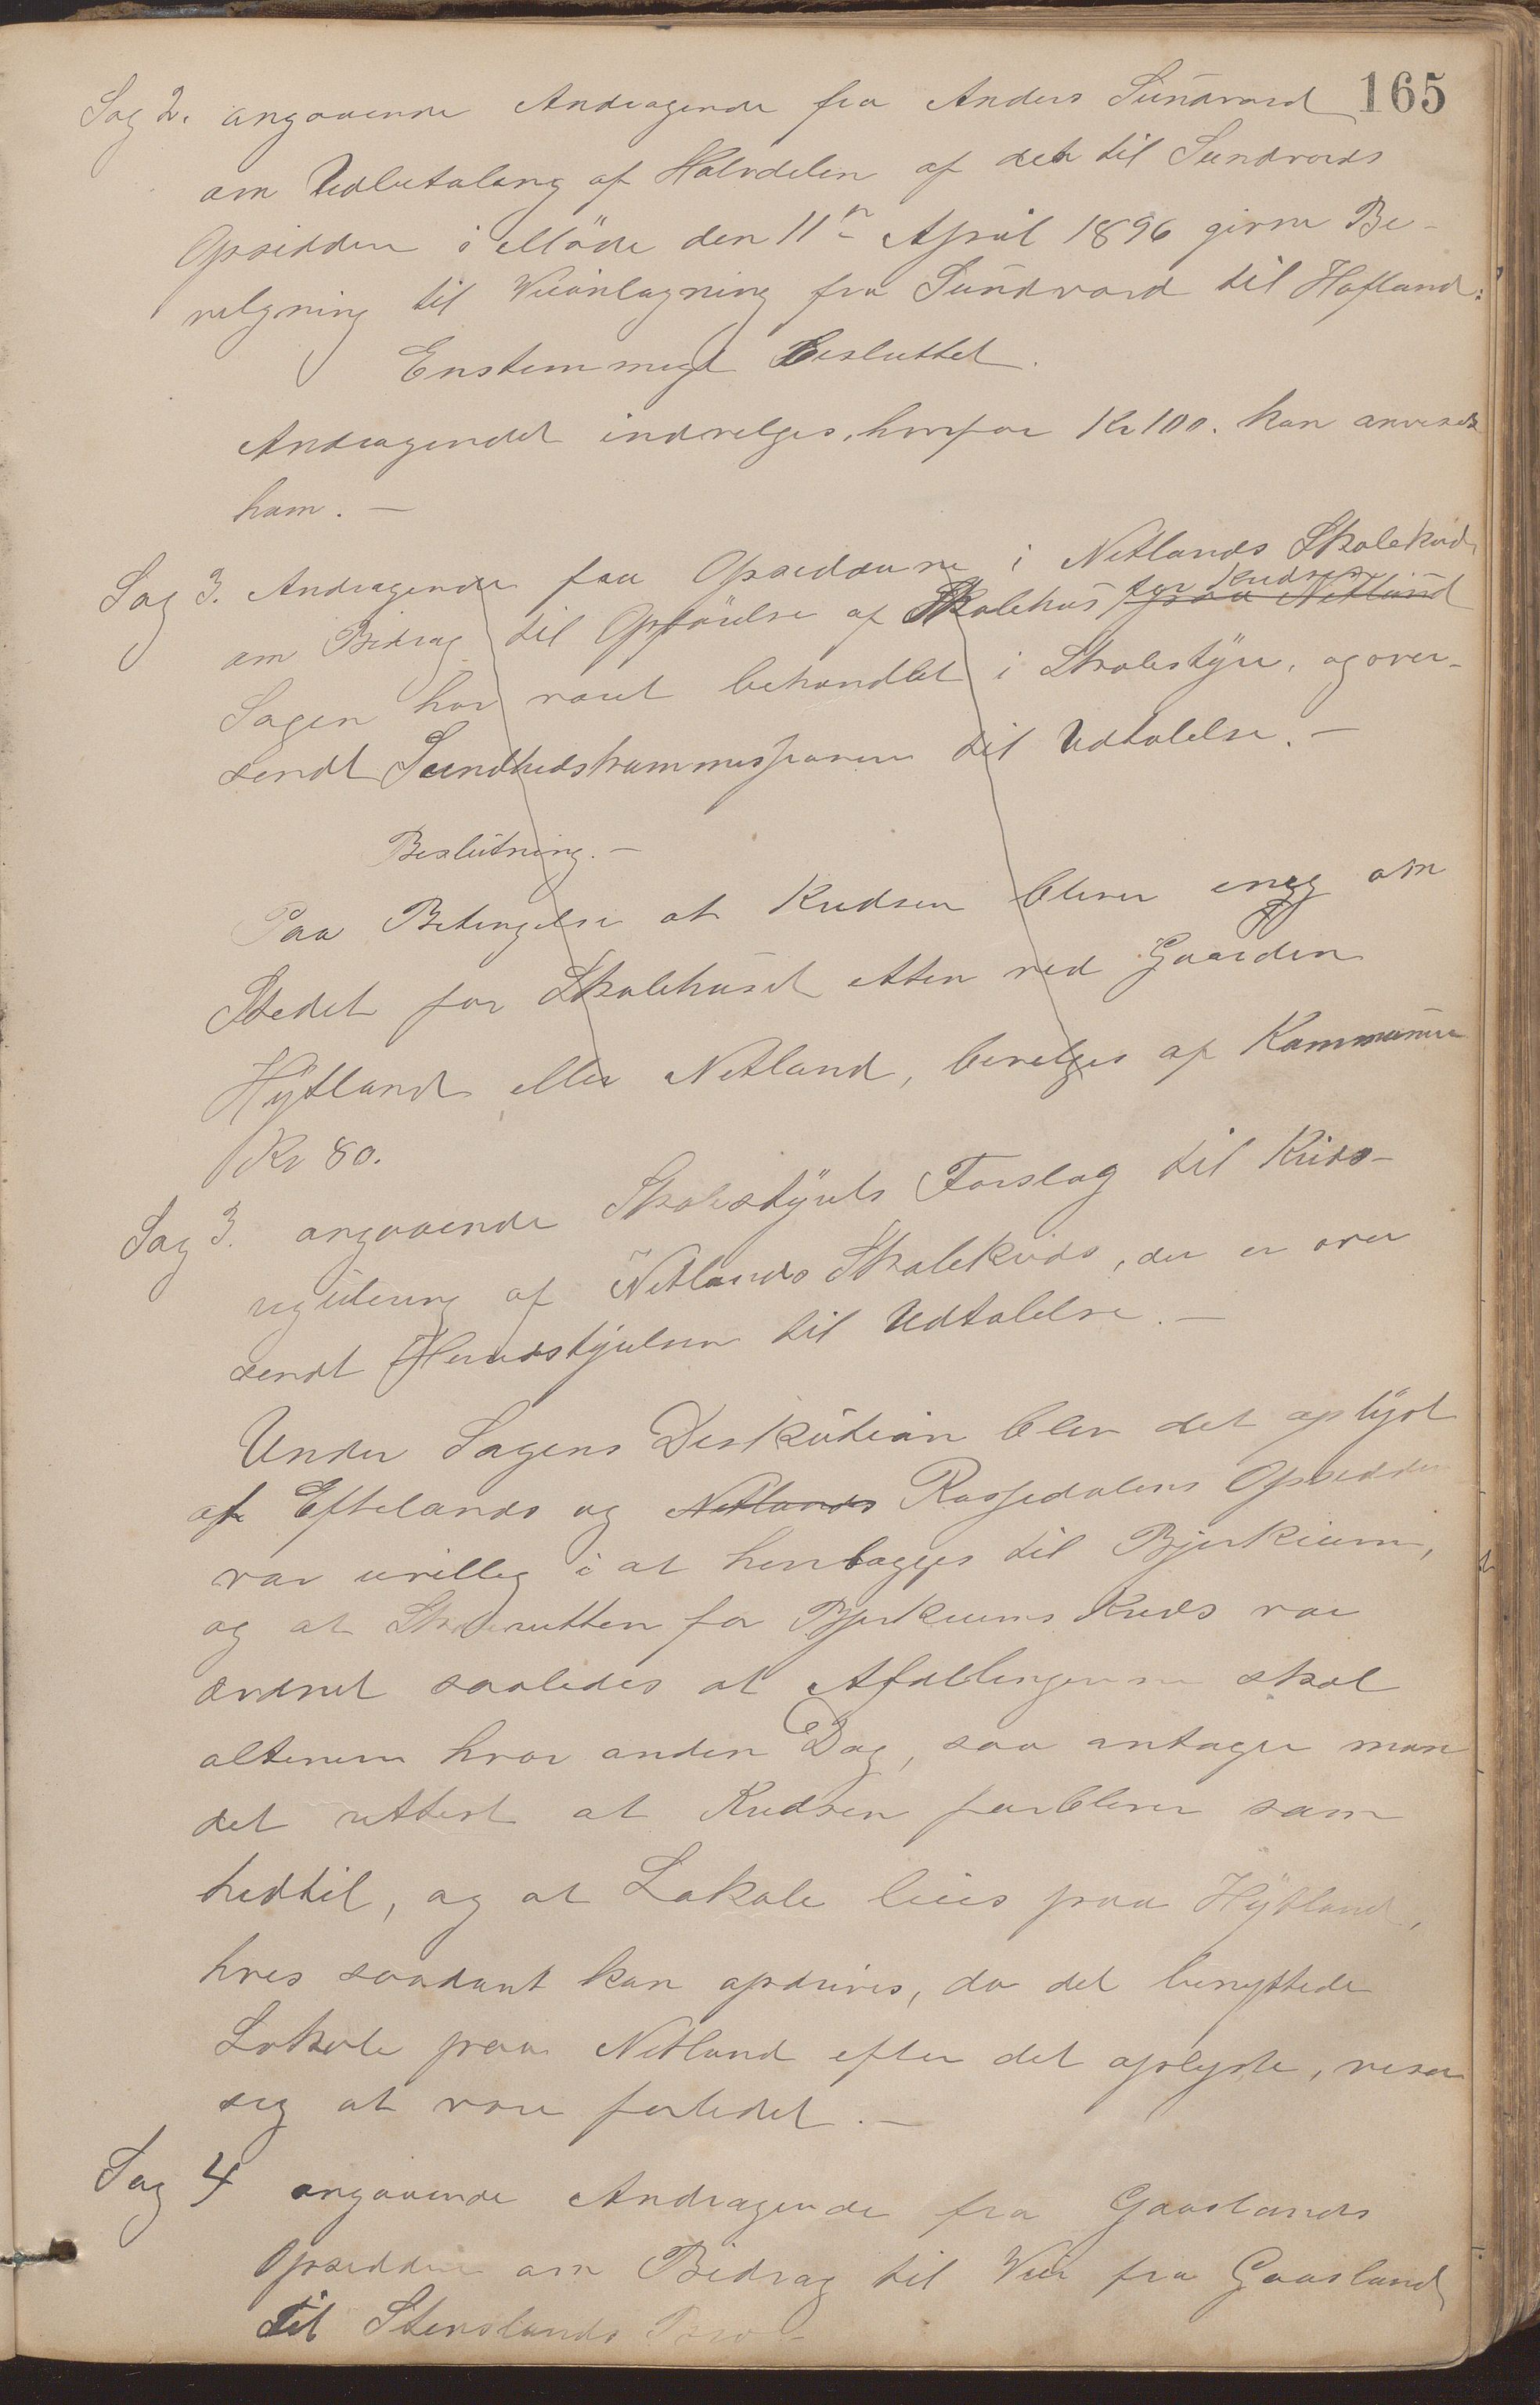 165
Sag 2. angaaende Andragende fra Anders Sundvord
om Udbetaling af Halvdelen af det til Sundvords
Opsiddere i Møde den 11te April 1896 givne Be-
vilgning til Veianlægning fra Sundvord til Hafland:
Enstemmigt Besluttet.
Andragendet indvilges, hvorfor Kr 100. kan anvises
ham. —
Sag 3. Andragende fra Opsidderne i Netlands Skolekreds
om Bidrag til Opførelse af Skolehus for Kredsen paa Netland
Sagen har været behandlet i Skolestyre, og over-
sendt Sundhedskommissionen til Udtalelse. —
Beslutning. —
Paa Betingelse at Kredsen bliver enig om
Stedet for Skolehuset etten ved Gaarden
Hÿtland eller Netland, bevilges af Kommunen
Kr 80.
Sag 3. angaaende Skolestyrets Forslag til Kreds-
regulering af Netlands Skolekreds, der er over
sendt Herredsstyrelsen til Udtalelse. —
Under Sagens Diskution blev det oplyst
at Eftelands og Netlands Rossedalens Opsiddere
var uvillig i at henlægges til Bjerkreim,
og at Skoleruten for Bjerkreims Kreds var
ordnet saaledes at Afdelingerne skal
alternere hver anden Dag, saa antager man
det rettest at Kredsen forbliver som
hidtil, og at Lokale leies paa Hÿtland,
hvis saadant kan opdrives, da det benyttede
Lokale paa Netland efter det oplyste, viser
sig at være forlidet. —
Sag 4 angaaende Andragende fra Gaaslands
Opsiddere om Bidrag til Vei fra Gaasland
til Stenslands Bro —